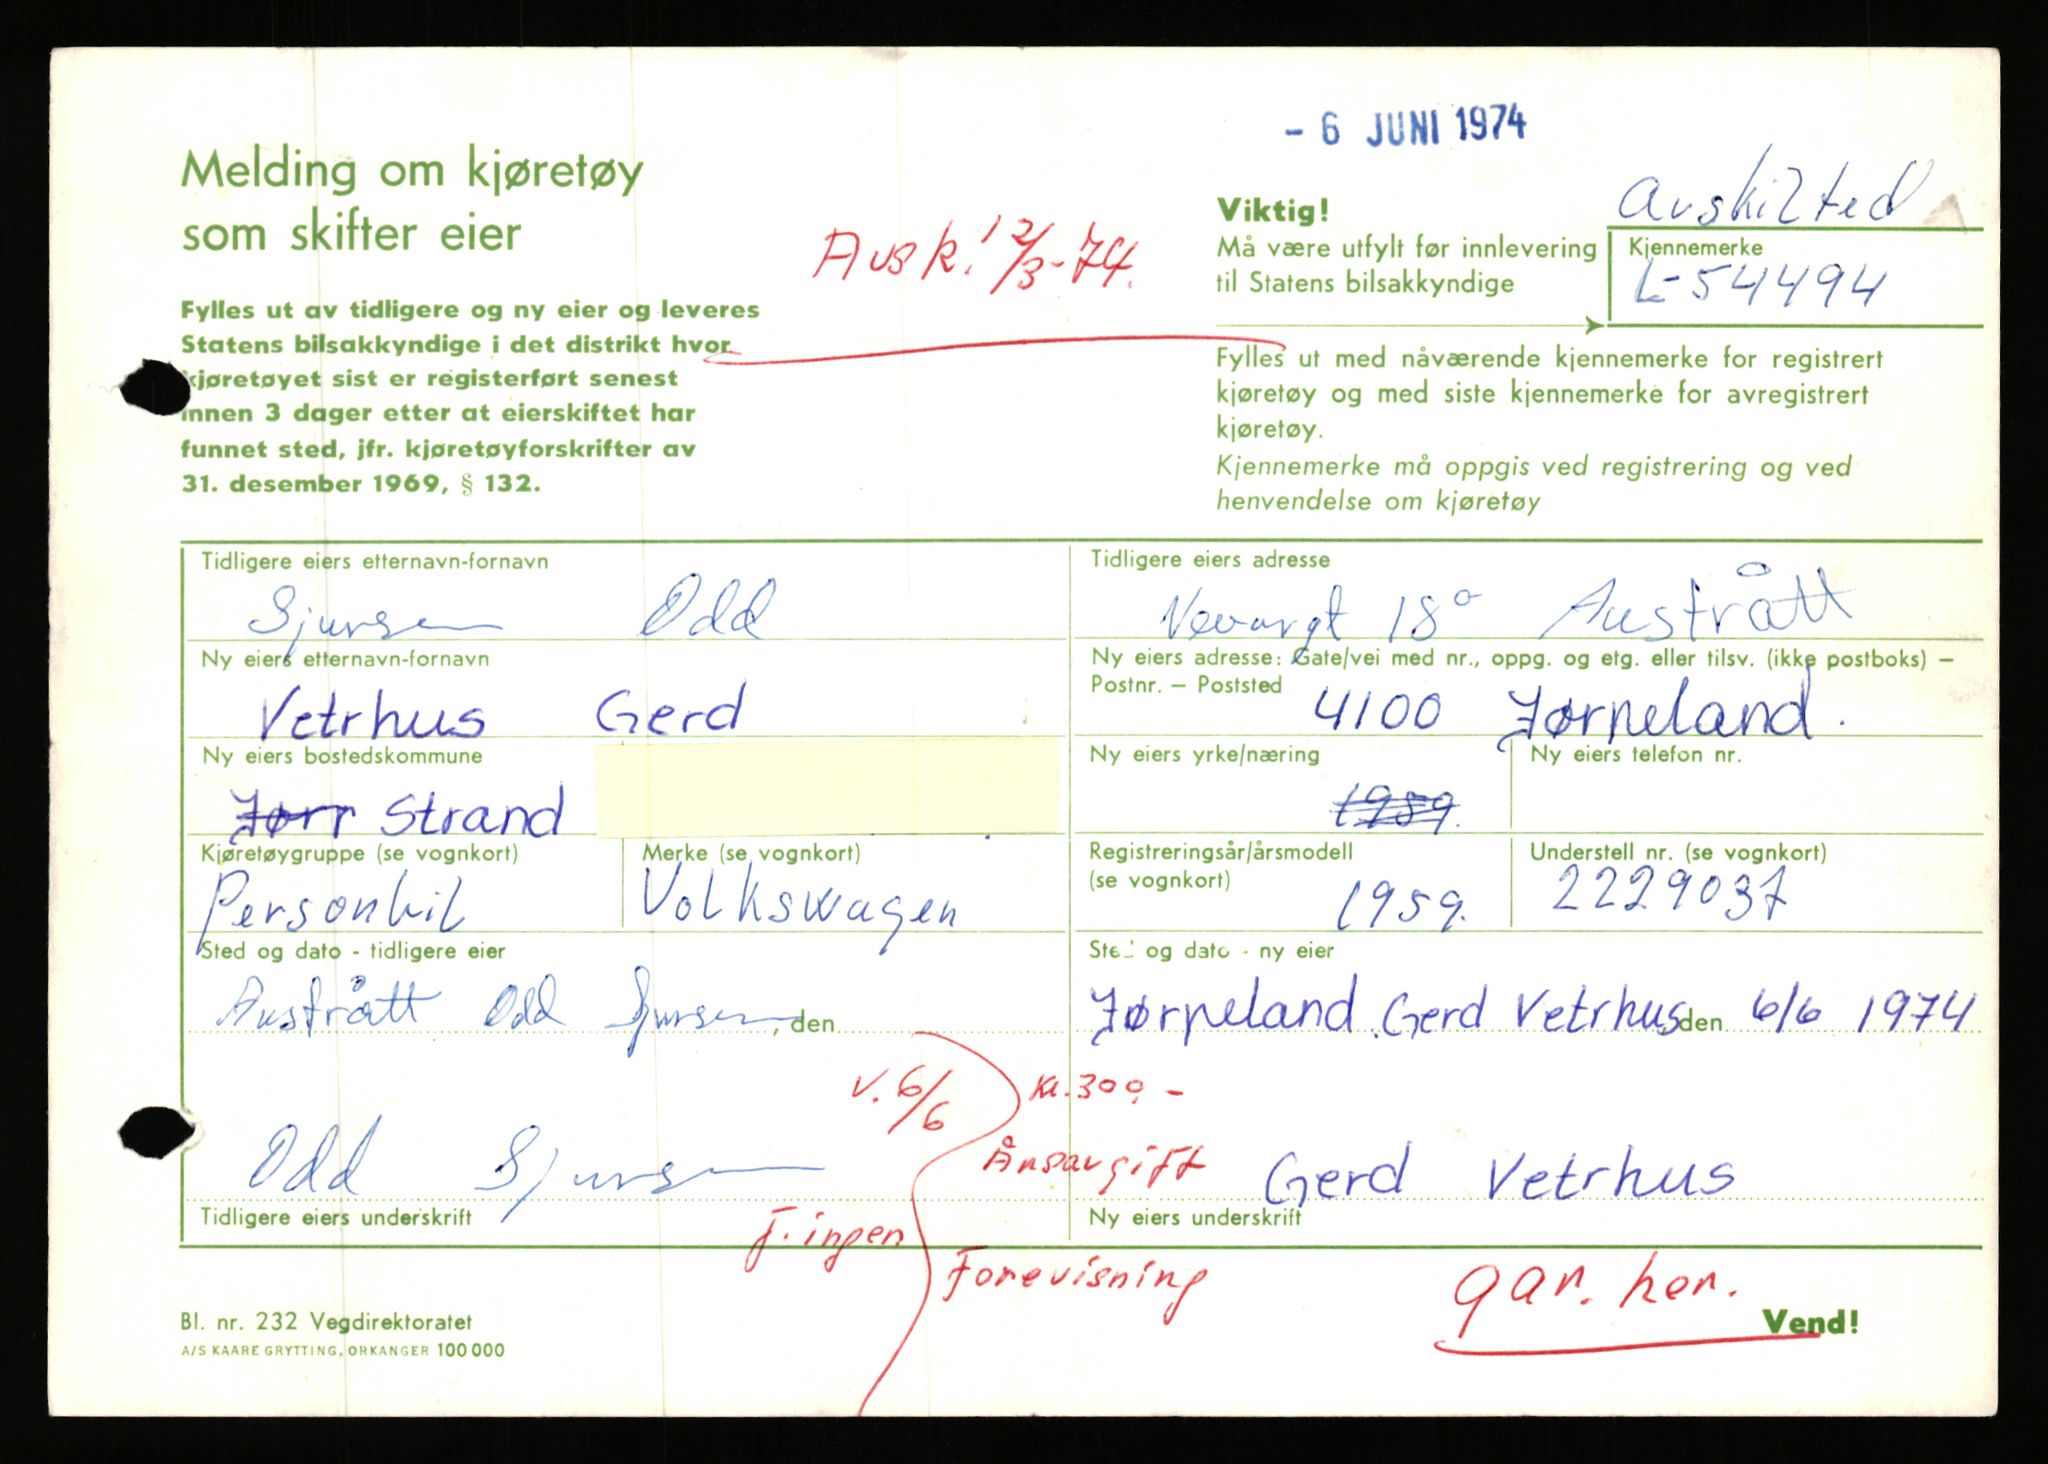 - 6 JUNI 1974
Melding om kjøretøy
som skifter eier
Avsk. 12/3-74.
Fylles ut av tidligere og ny eier og leveres
Statens bilsakkyndige i det distrikt hvor
kjøretøyet sist er registerført senest
innen 3 dager etter at eierskiftet har
funnet sted, jfr. kjøretøyforskrifter av
31. desember 1969, § 132.
Viktig!
Må være utfylt før innlevering
til Statens bilsakkyndige
Avskilted
Kjennemerke
L-54494
Fylles ut med nåværende kjennemerke for registrert
kjøretøy og med siste kjennemerke for avregistrert
kjøretøy.
Kjennemerke må oppgis ved registrering og ved
henvendelse om kjøretøy
Tidligere eiers etternavn-fornavn
Sjursen Odd
Tidligere eiers adresse
18 Austrått
Ny eiers etternavn-fornavn
Vetrhus Gerd
Ny eiers adresse: Gate/vei med nr., oppg. og etg. eller tilsv. (ikke postboks) –
Postnr. – Poststed
4100 Jørpeland.
Ny eiers bostedskommune
Jørr Strand
Ny eiers yrke/næring
1959.
Ny eiers telefon nr.
Kjøretøygruppe (se vognkort)
Personbil
Merke (se vognkort)
Volkswagen
Registreringsår/årsmodell
(se vognkort)
1959.
Understell nr. (se vognkort)
2229037
Sted og dato - tidligere eier
Austrått Odd Sjursen, den
Sted og dato - ny eier
Jørpeland Gerd Vetrhus, den 6/6 1974
v. 6/6
Kr. 300,-
Årsavgift
Odd Sjursen
Tidligere eiers underskrift
Gerd Vetrhus
Ny eiers underskrift
F. ingen
Forevisning
gar. her.
Bl. nr. 232 Vegdirektoratet
A/S KAARE GRYTTING, ORKANGER 100 000
Vend!